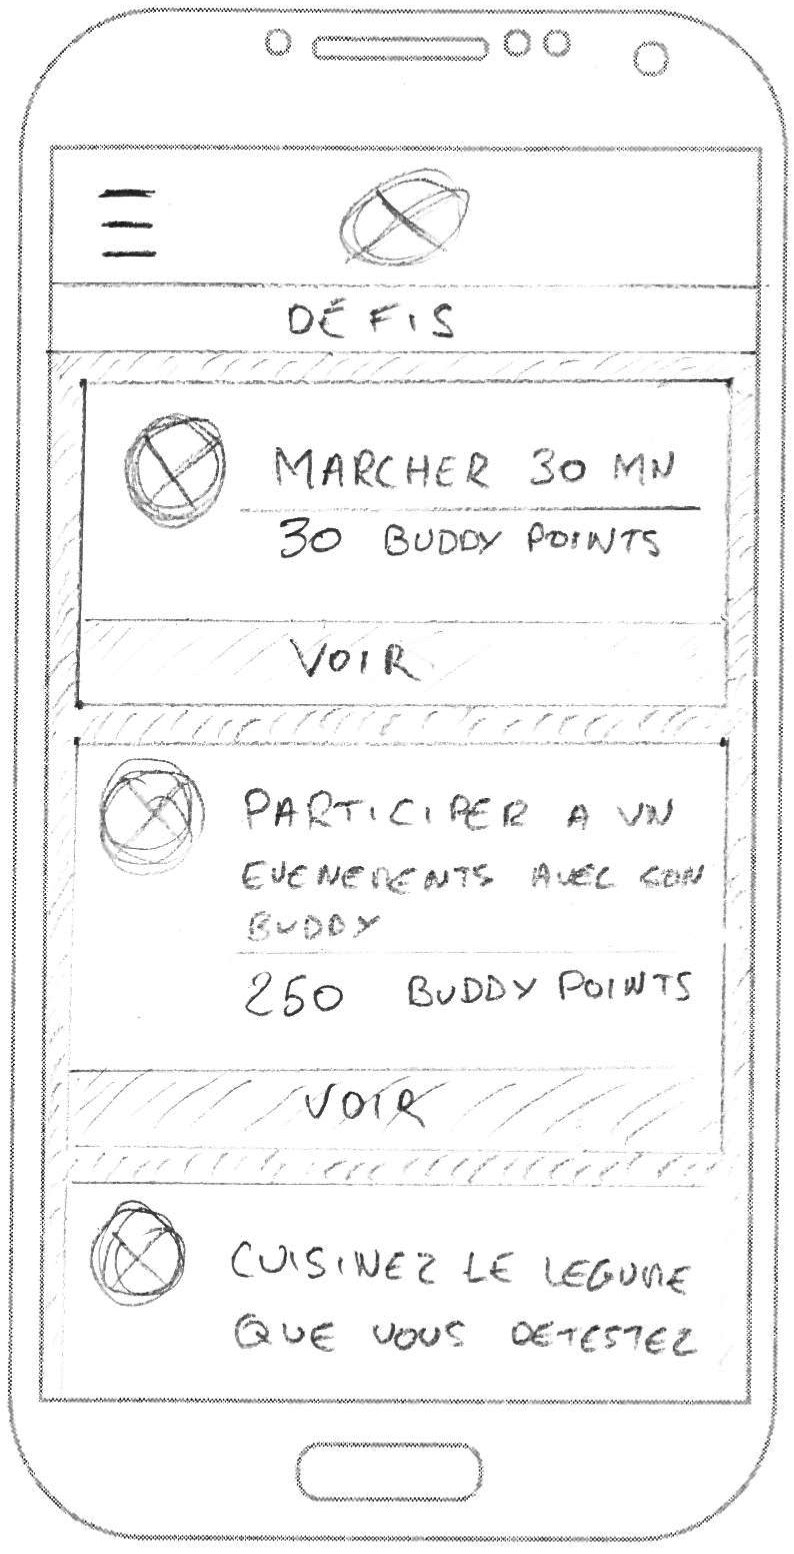 DÉFIS
MARCHER 30 MN
30 BUDDY POINTS
VOIR
PARTICIPER A UN
EVENEMENTS AVEC SON
BUDDY
250 BUDDY POINTS
VOIR
CUISINEZ LE LEGUME
QUE VOUS DETESTEZ